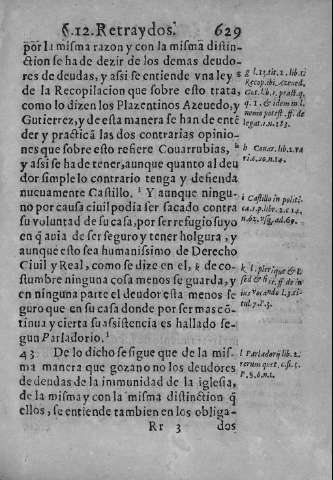 §.12. Retraydos. 629
por la misma razon y con la misma distin-
ction se ha de dezir de los demas deudo-
res de deudas, y assi se entiende vna ley g
de la Recopilacion que sobre esto trata,
como lo dizen los Plazentinos Azeuedo, y
Gutierrez, y de esta manera se han de enté
der y practicā las dos contrarias opinio-
nes que sobre esto refiere Couarrubias, h
y assi se ha de tener, aunque quanto al deu
dor simple lo contrario tenga y defienda
nucuamente Castillo. i Y aunque ningu-
no por causa ciuil podia ser sacado contra
su voluntad de su casa, por ser refugio suyo
en q̄ auia de ser seguro y tener holgura, y
aunque esto sea humanissimo de Derecho
Ciuil y Real, como se dize en el, k de co-
stumbre ninguna cosa menos se guarda, y
en ninguna parte el deudor esta menos se
guro que en su casa donde por ser mas cō-
tinua y cierta su assistencia es hallado se-
gun Parladorio. l
43 De lo dicho se sigue que de la mis-
ma manera que gozan o no los deudores
de deudas de la inmunidad de la iglesia,
de la misma y con la misma distinction q̄
ellos, se entiende tambien en los obliga-
Rr 3 dos
Recop. ibi Azeued.
Gut. lib. 1. pract. q.
legat. 1. n. 183.
h Couar. lib. 2. va
ri. c. 20. n. 14.
i Castillo in politi
ca. 1. p. lib. 2. c. 14.
l Parladorij lib. 2.